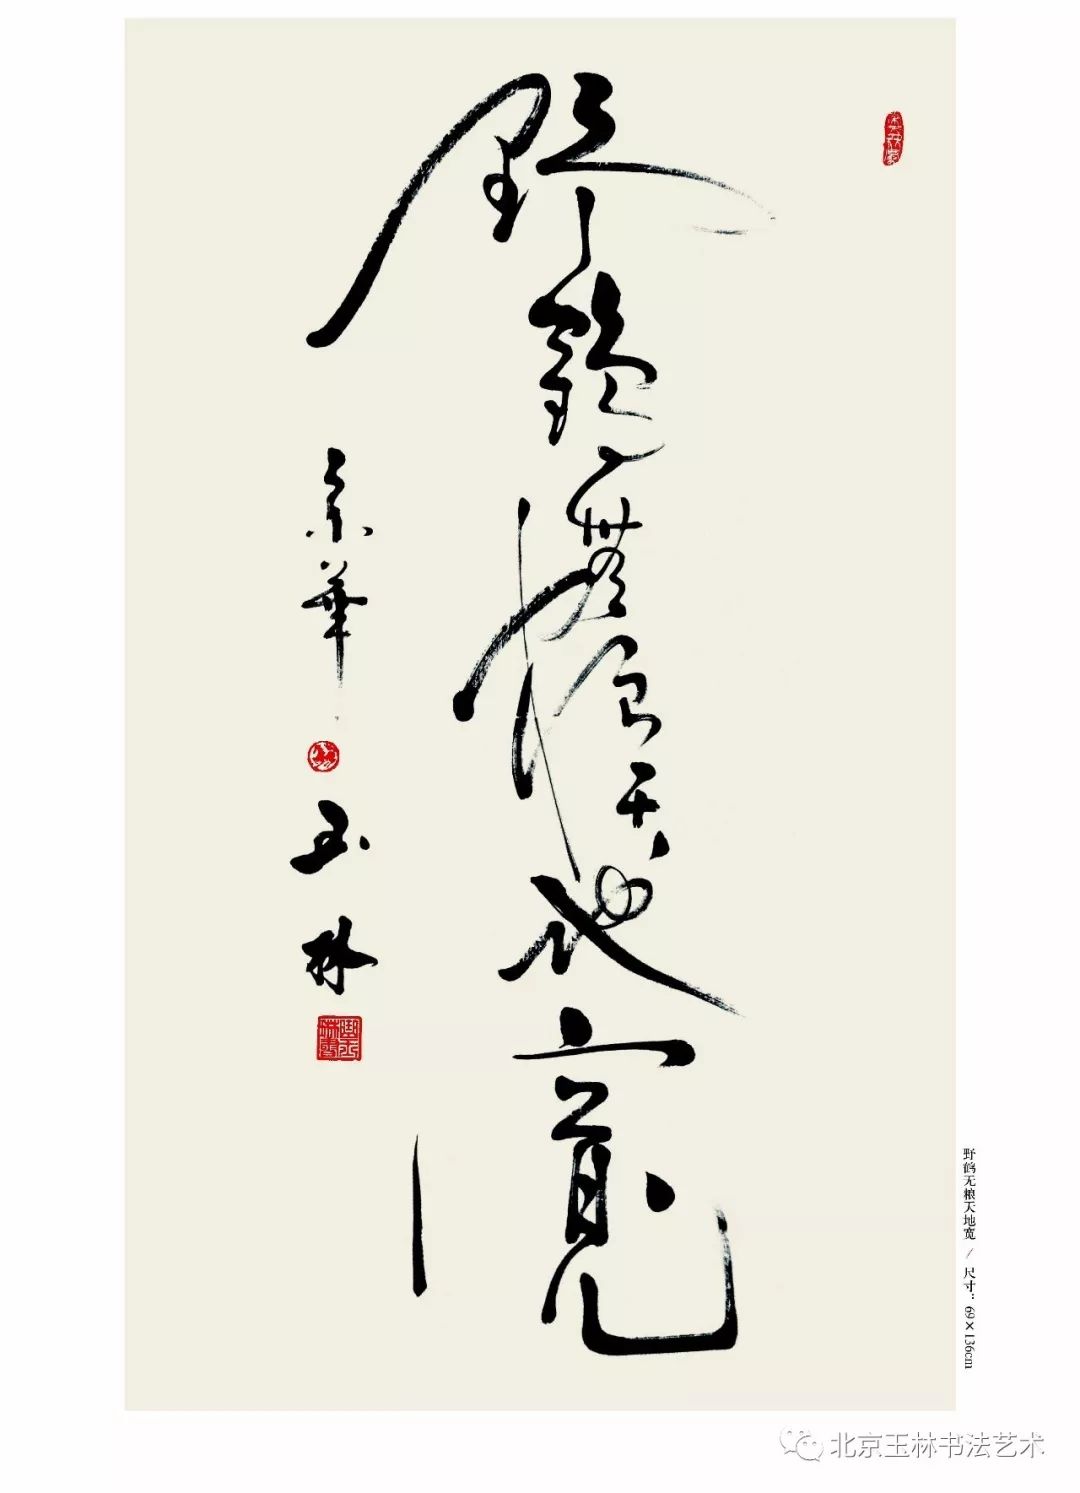 野鹤無粮天地寬
京華
玉林
野鹤无粮天地宽 / 尺寸：69×136cm
北京玉林书法艺术